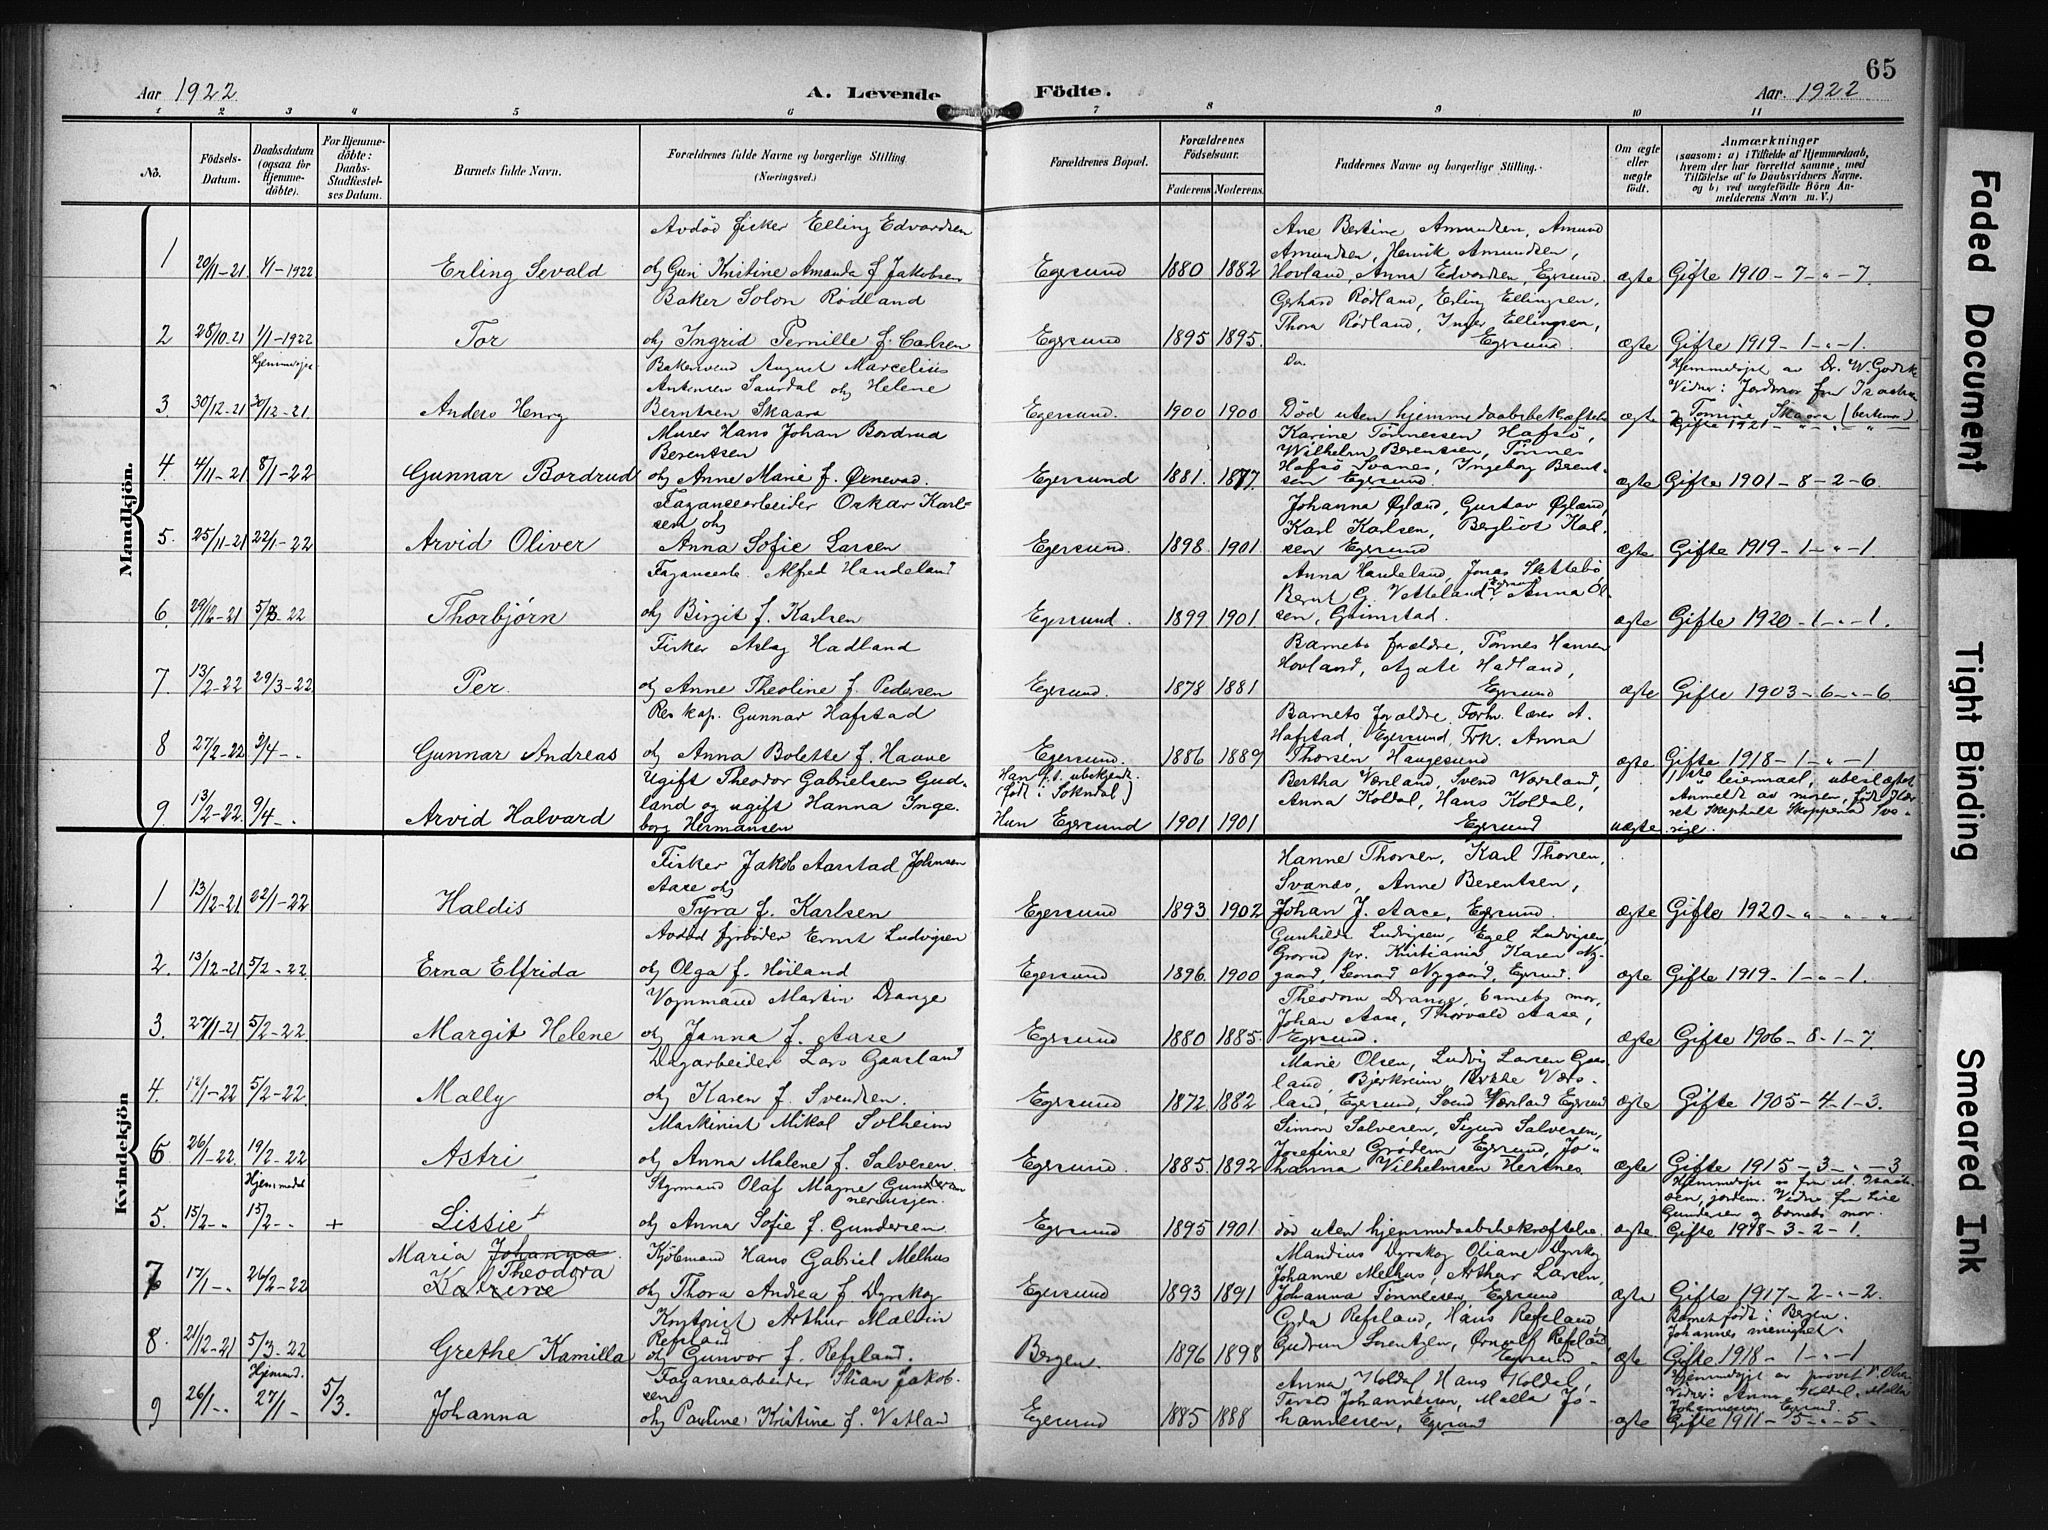 65
Aar 1922
A. Levende
Födte.
Aar 1922
1 2 3 4 5 6 7 8 9 10 11
No.
Födsels-
Datum.
Daabsdatum
(ogsaa for
Hjemme-
döbte).
For Hjemme-
döbte:
Daabs-
Stadfæstel-
ses Datum.
Barnets fulde Navn.
Forældrenes fulde Navne og borgerlige Stilling.
(Næringsvei.)
Forældrenes Bopæl.
Forældrenes
Födselsaar.
Faderens
Moderens.
Faddernes Navne og borgerlige Stilling.
Om ægte
eller
uægte
födt.
Anmærkninger
(saasom: a) i Tilfælde af Hjemmedaab,
hvem der har forrettet samme, med
Tilföielse af to Daabsvidners Navne.
og b) ved uægtefödte Börn An-
melderens Navn m. V.)
Mandkjön.
1
20/11-21
1/1-1922
Erling Sevald
Avdöd fisker Elling Edvardsen
og Guri Kristine Amanda f. Jakobsen
Egersund
1880
1882
Ane Bertine Amundsen, Amund
Amundsen, Henrik Amundsen,
Hovland, Anna Edvardsen, Egersund.
ægte
Gifte 1910-7-"-7.
2
28/10-21
1/1-1922
Tor
Baker Solon Rödland
og Ingrid Pernille f. Carlsen
Egersund
1895
1895.
Gerhard Rödland, Erling Ellingsen,
Thora Rödland, Inger Ellingsen,
Egersund.
ægte
Gifte 1919-1-"-1.
3.
30/12-21
Hjemmedöpt
30/12-21
Anders Henry
Bakersvend August Marcelius
Antonsen Saurdal og Helene
Berntsen Skaara
Egersund.
1900
1900
Do.
Död uten hjemmedaabsbekræftelse
ægte
Hjemmedöpt av Dr. W. Godtk
Vidner: Jordmor frk Isachsen
og Tomine Skaara (bestemor)
Gifte 1921-"-"-"
4
4/11-21
8/1-22
Gunnar Bordrud
Murer Hans Johan Bordrud
Berentsen
og Anne Marie f. Ørnevad.
Egersund
1881.
1877.
Karine Tönnessen Hafsö,
Wilhelm Berentsen, Tönnes
Hafsö Svanes, Ingeborg Berent-
sen Egersund.
ægte
Gifte 1901-8-2-6.
5.
25/11-21
22/1-22
Arvid Oliver
Fajancearbeider Oskar Karl-
sen og
Anna Sofie Larsen
Egersund.
1898.
1901
Johanna Øgland, Gustav Øgland,
Karl Karlsen, Bergliot Kal
sen Egersund
ægte
Gifte 1919-1-"-1
6.
29/12-21
5/3-22
Thorbjörn
Fajansearb. Alfred Handeland
og Birgit f. Karlsen
Egersund.
1899
1901
Anna Handeland, Jonas Slettebö
Bernt G. Vetteland, Anna Ol-
sen, Grimstad.
ægte
Gifte 1920-1-"-1.
7.
13/2-22
29/3-22
Per.
Fisker Aslag Hadland
og Anne Theoline f. Pedersen
Egersund.
1878
1881
Barnets forældre, Tönnes Hansen
Hovland, Agate Hadland,
Egersund
ægte
Gifte 1903-6-"-6
8
27/2-22
2/4-"
Gunnar Andreas
Res kap. Gunnar Hafstad
og Anna Bolette f. Haave
Egersund.
1886
1889
Barnets forældre, Forhv. lærer A.
Hafstad, Egersund, Frk. Anna
Thorsen Haugesund
ægte
Gifte 1918-1-"-1
9.
13/2-22.
9/4-"
Arvid Halvard
Ugift Theodor Gabrielsen Gud-
land og ugift Hanna Inge-
borg Hermansen
Han p.t. ubekjendt
(född i Sokndal)
Hun Egersund
1901
1901
Bertha Værland, Svend Værland,
Anna Koldal, Hans Koldal,
Egersund
uægte
1ste leiermaal, uberegtet
Anmeldt av moren, född
Kvindekjön
1
13/12-21
22/1-22
Haldis
Fisker Jakob Aarstad Johnsen
Aase og
Tyra f. Karlsen
Egersund
1893
1902
Hanne Thorsen, Karl Thorsen,
Svanes, Anne Berentsen,
Johan J. Aase, Egersund.
ægte
Gifte 1920-"-"-"
2.
13/12-21
5/2-22
Erna Elfrida
Avdöd fyrböder Ernst Ludvigsen
og Olga f. Höiland
Egersund
1896.
1900
Gunhilda Ludvigsen, Egel Ludvigsen,
Grorud pr. Kristiania, Karen Ny-
gaard, Lenard Nygaard, Egersund.
ægte
Gifte 1919-1-"-1.
3.
27/1-21
5/2-22
Margit Helene
Vognmand Martin Drange
og Janna f. Aase
Egersund
1880
1885.
Theodora Drange, barnets mor,
Johan Aase, Thorvald Aase,
Egersund.
ægte
Gifte 1906-8-1-7.
4.
12/1-22
5/2-22.
Mally
Dagarbeider Lars Gaasland
og Karen f. Svendsen.
Egersund
1872
1882
Marie Olsen, Ludvig Larsen Gaas-
land, Bjerkreim, Værs-
land, Egersund, Svend Værland Egersund
ægte
Gifte 1905-4-1-3.
6
26/1-22.
19/2-22
Astri
Maskinist Mikal Solheim
og Anna Malene f. Salvesen.
Egersund.
1885.
1892
Simon Salvesen, Sigurd Salvesen,
Josefine Grödem Egersund, Jo-
hanna Vilhelmsen Hestnes
ægte
Gifte 1915-3-"-3
5.
15/2-"
Hjemmedöbt
15/2-"
+
Lissie +
Styrmand Olaf Magne Gundersen
og Anna Sofie f. Gundersen
Egersund
1895
1901
död uten hjemmedaabsbekræftelse.
ægte
Hjemmedöpt av frk M. Isach-
sen, jordm. Vidner frk Lise
Gundersen og barnets mor.
Gifte 1918-3-2-1.
7
17/1-"
26/2-22
Maria Johanna
Theodora
Katrine
Kjöbmand Hans Gabriel Melhus
og Thora Andrea f. Dyrskog
Egersund
1893
1891
Mandius Dyrskog Oliane Dyrskog
Johanne Melhus, Arthur Larsen,
Johanna Tönnesen Egersund
ægte
Gifte 1917-2-"-2.
8.
21/12-21
5/3-22
Grethe Kamilla
Arthur Malvin
Refsland
og Gunvor f. Refsland.
Bergen.
1896
1898
Gyda Refsland, Hans Refsland,
Gudrun Lorentzen, Ørnulf Refsland
Egersund.
ægte
Barnet födt i Bergen.
Johannes menighet.
Gifte 1918-1-"-1
9
26/1-"
Hjemmd.
27/1-
5/3.
Johanna
Fajancearbeider Stian Jakob-
sen
og Pauline Kristine f. Vatland
Egersund
1885
1888
Anna Koldal, Hans Koldal,
Johannessen, Malla Jo-
hannessen, Egersund
ægte
Hjemmedöpt av provst Olsen
Vidner: Anna Koldal, Malla
Johannessen, Egersund.
Gifte 1911-5-"-5.
Faded Document
Tight Binding
Smeared Ink